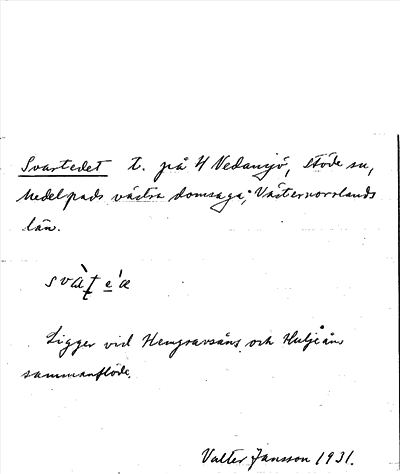 Svartedet t. på H Vedansjö, Stöde sn,
Medelpads västra domsaga; Västernorrlands
län.
Ligger vid Hemgravsåns och Huljeåns
sammanflöde.
Valter Jansson 1931.